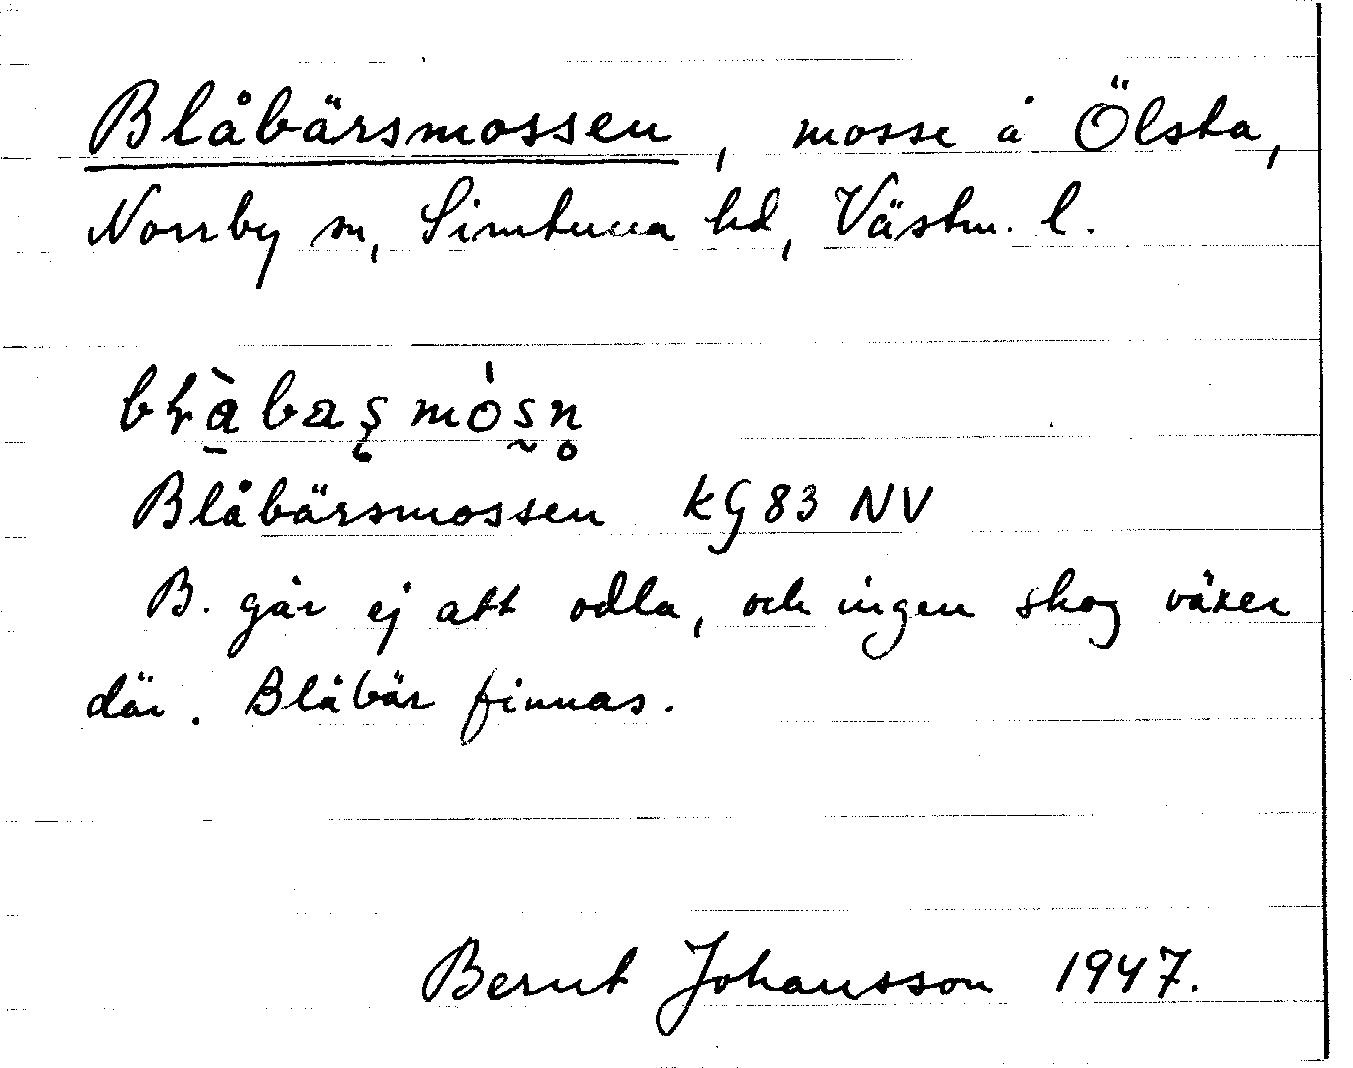 Blåbärsmossen, mosse å Ölsta,
Norrby sn, Simtuna hd, Västm. l.
bɫà̱baʂmósn̥
Blåbärsmossen kG83 NV
B. går ej att odla, och ingen skog växer
där. Blåbär finnas.
Bernt Johansson 1947.